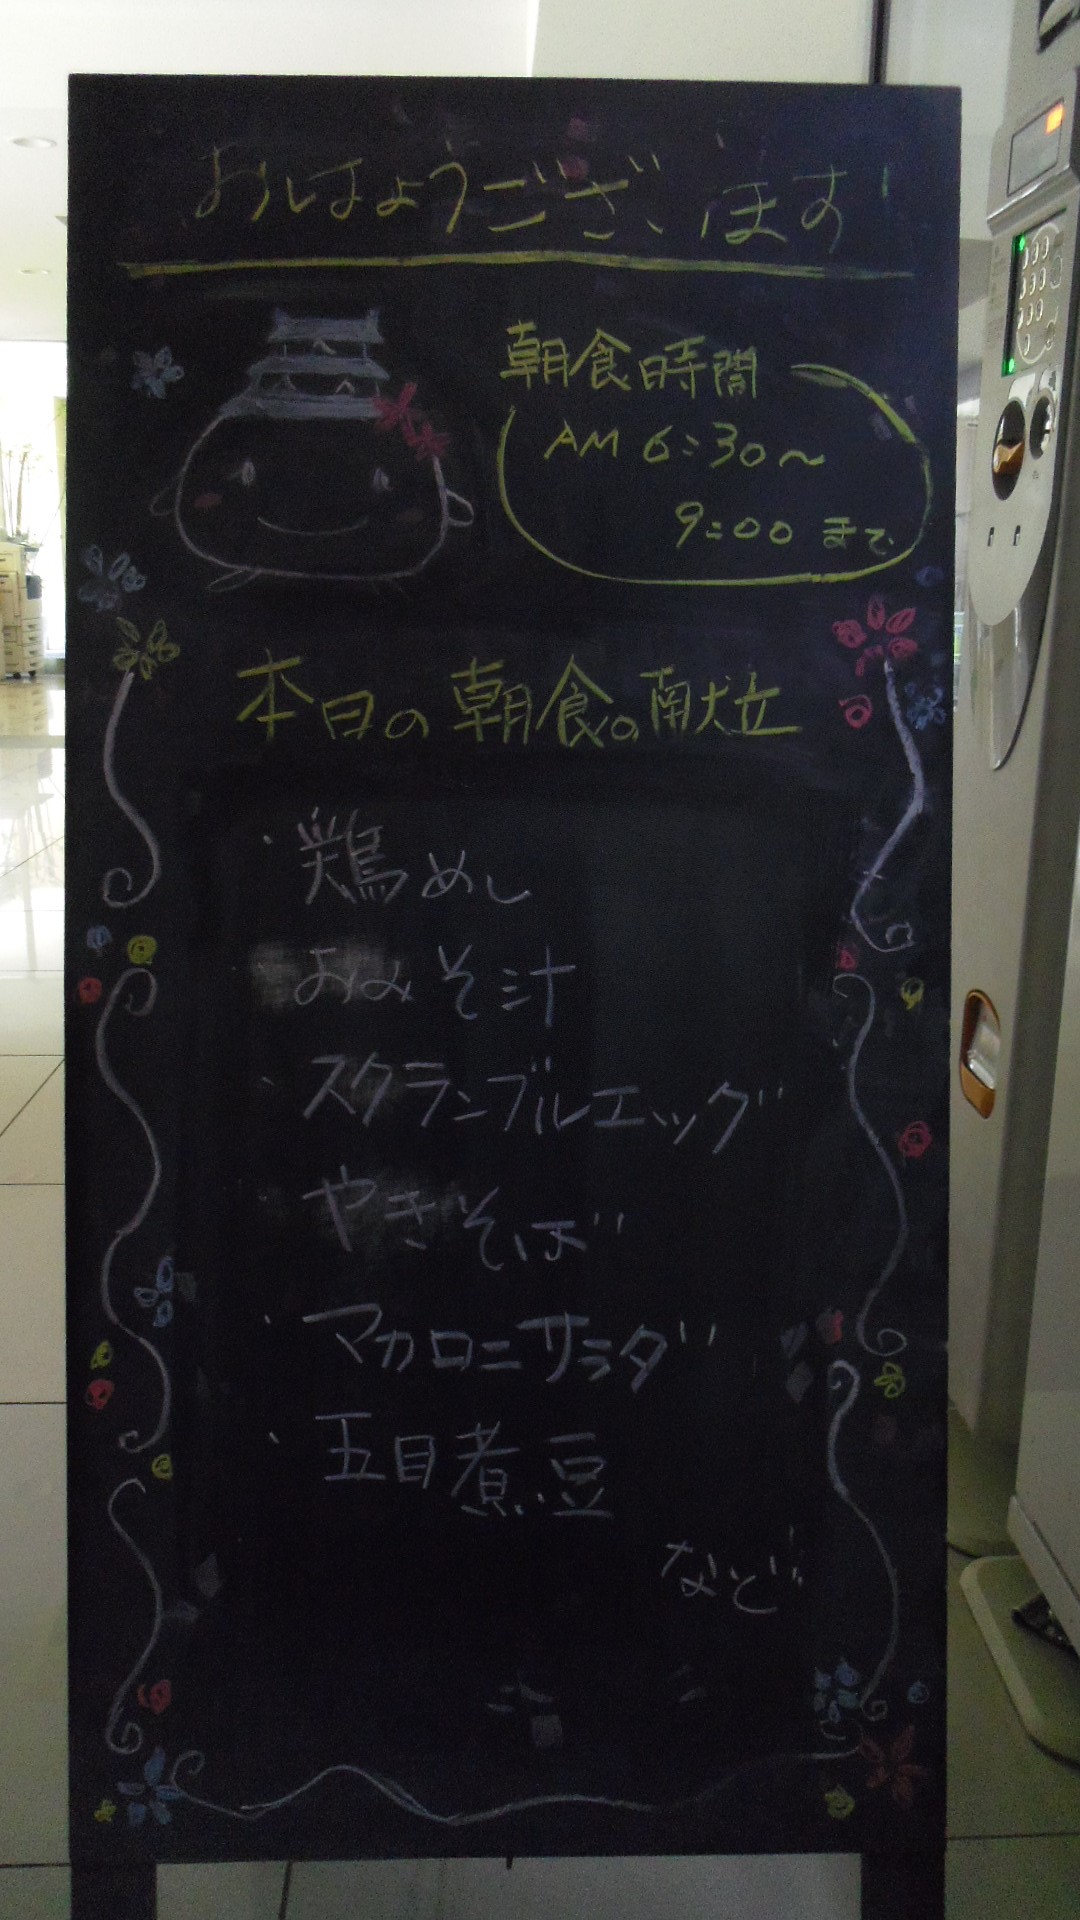 おはようございます!
朝食時間
AM 6:30～
9:00 まで
本日の朝食の献立
・鶏めし
おみそ汁
・スクランブルエッグ
やきそば
・マカロニサラダ
・五目煮豆
など